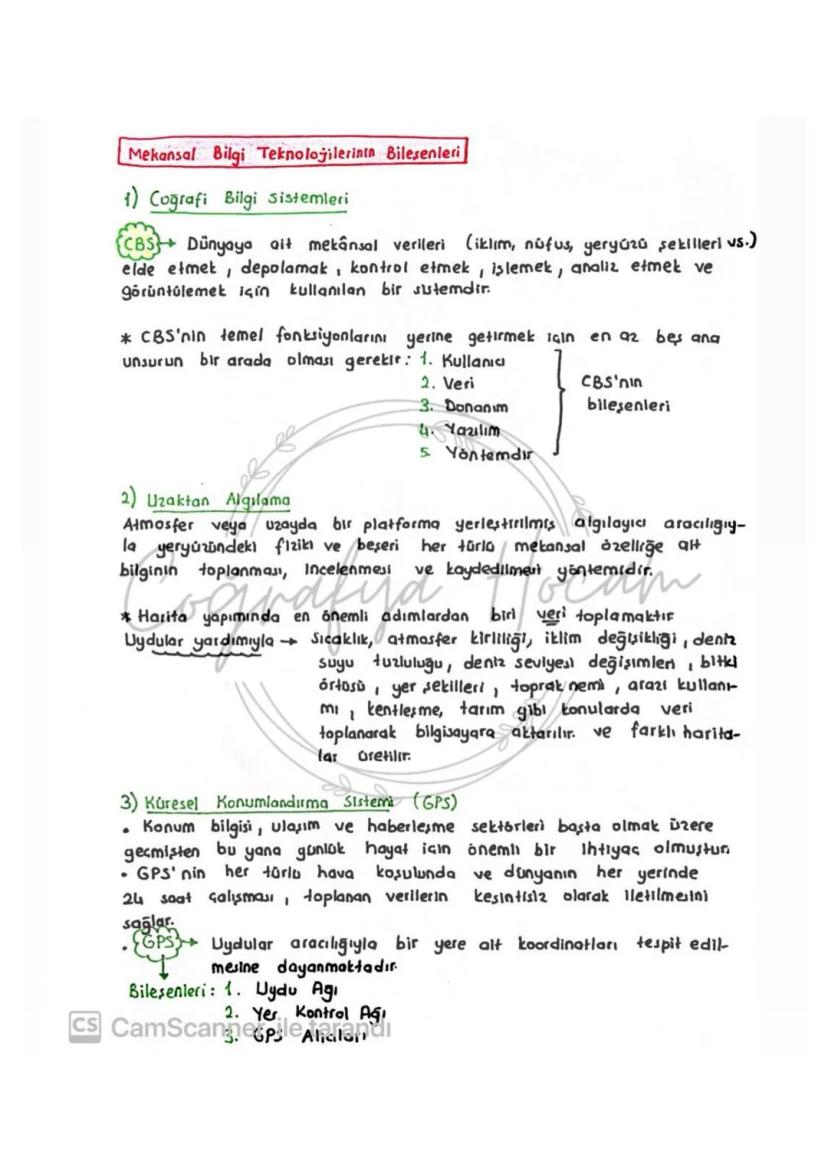 Mekansal Bilgi Teknolojilerinin Bileşenleri
1) Coğrafi Bilgi Sistemleri
CBS → Dünyaya ait mekânsal verileri (iklim, nüfus, yeryüzü şekilleri vs.)
elde etmek, depolamak, kontrol etmek, işlemek, analiz etmek ve
görüntülemek için kullanılan bir sistemdir.
* CBS'nin temel fonksiyonlarını yerine getirmek için en az beş ana
unsurun bir arada olması gerekir: 1. Kullanıcı
2. Veri
3. Donanım
4. Yazılım
5. Yöntemdir
CBS'nin
bileşenleri
2) Uzaktan Algılama
Atmosfer veya uzayda bir platforma yerleştirilmiş algılayıcı aracılığıy-
la yeryüzündeki fiziki ve beşeri her türlü mekansal özelliğe ait
bilginin toplanması, incelenmesi ve kaydedilmesi yöntemidir.
Coğrafya Hocam
* Harita yapımında en önemli adımlardan biri veri toplamaktır
Uydular yardımıyla → Sıcaklık, atmosfer kirliliği, iklim değişikliği, deniz
suyu tuzluluğu, deniz seviyesi değişimleri, bitki
örtüsü, yer şekilleri, toprak nemi, arazi kullanı-
mı, kentleşme, tarım gibi konularda veri
toplanarak bilgisayara aktarılır. ve farklı harita-
lar üretilir.
3) Küresel Konumlandırma Sistemi (GPS)
• Konum bilgisi, ulaşım ve haberleşme sektörleri başta olmak üzere
geçmişten bu yana günlük hayat için önemli bir ihtiyaç olmuştur.
• GPS'nin her türlü hava koşulunda ve dünyanın her yerinde
24 saat çalışması, toplanan verilerin kesintisiz olarak iletilmesini
sağlar.
• GPS → Uydular aracılığıyla bir yere ait koordinatları tespit edil-
mesine dayanmaktadır.
Bileşenleri: 1. Uydu Ağı
2. Yer Kontrol Ağı
3. GPS Alıcıları
CS CamScanner ile tarandı